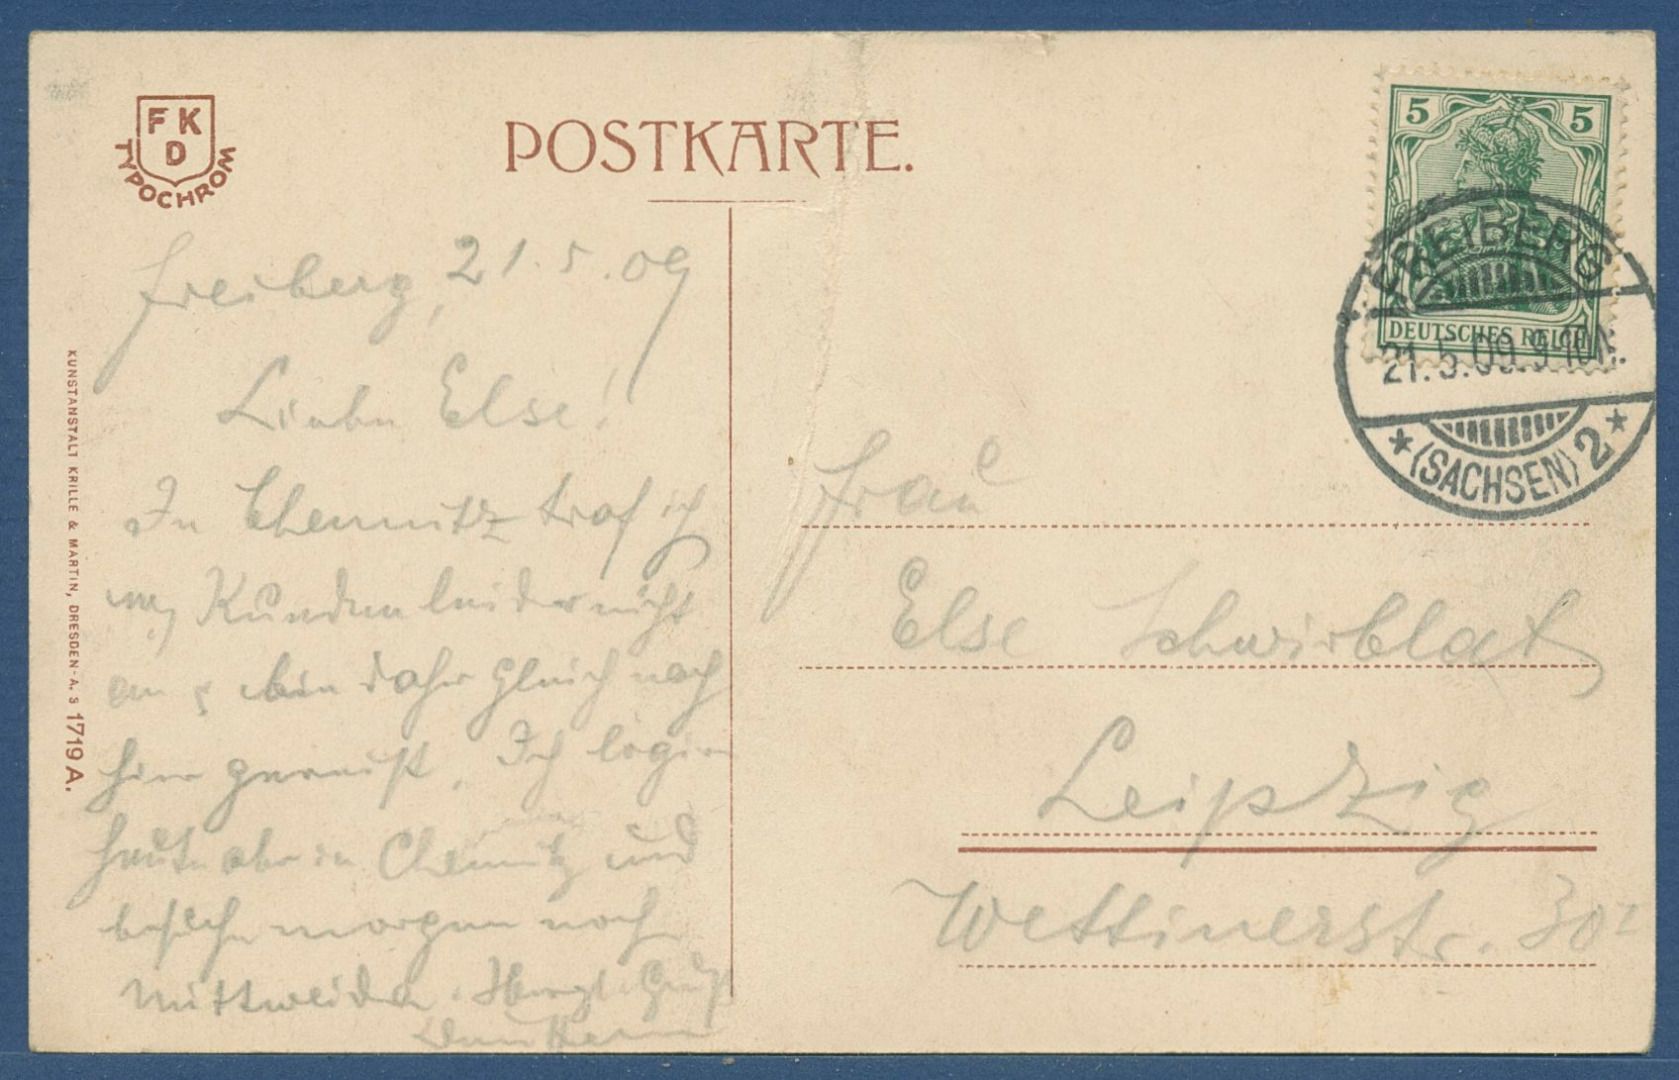 F K
D
TYPOCHROM
POSTKARTE.
5 5
DEUTSCHES REICH
FREIBERG
21.5.09.9-10
(SACHSEN) 2
Freiberg, 21.5.09
Liebe Else!
In Chemnitz traf ich
Kunden leider nicht
an & bin daher gleich nach
hier gereist. Ich logire
heute aber in Chemnitz und
besuche morgen noch
Mittweida. Herzl. Gruß
Dein
Frau
Else Schwirblat
Leipzig
Wettinerstr. 30 I
KUNSTANSTALT KRILLE & MARTIN, DRESDEN-A. S 1719 A.